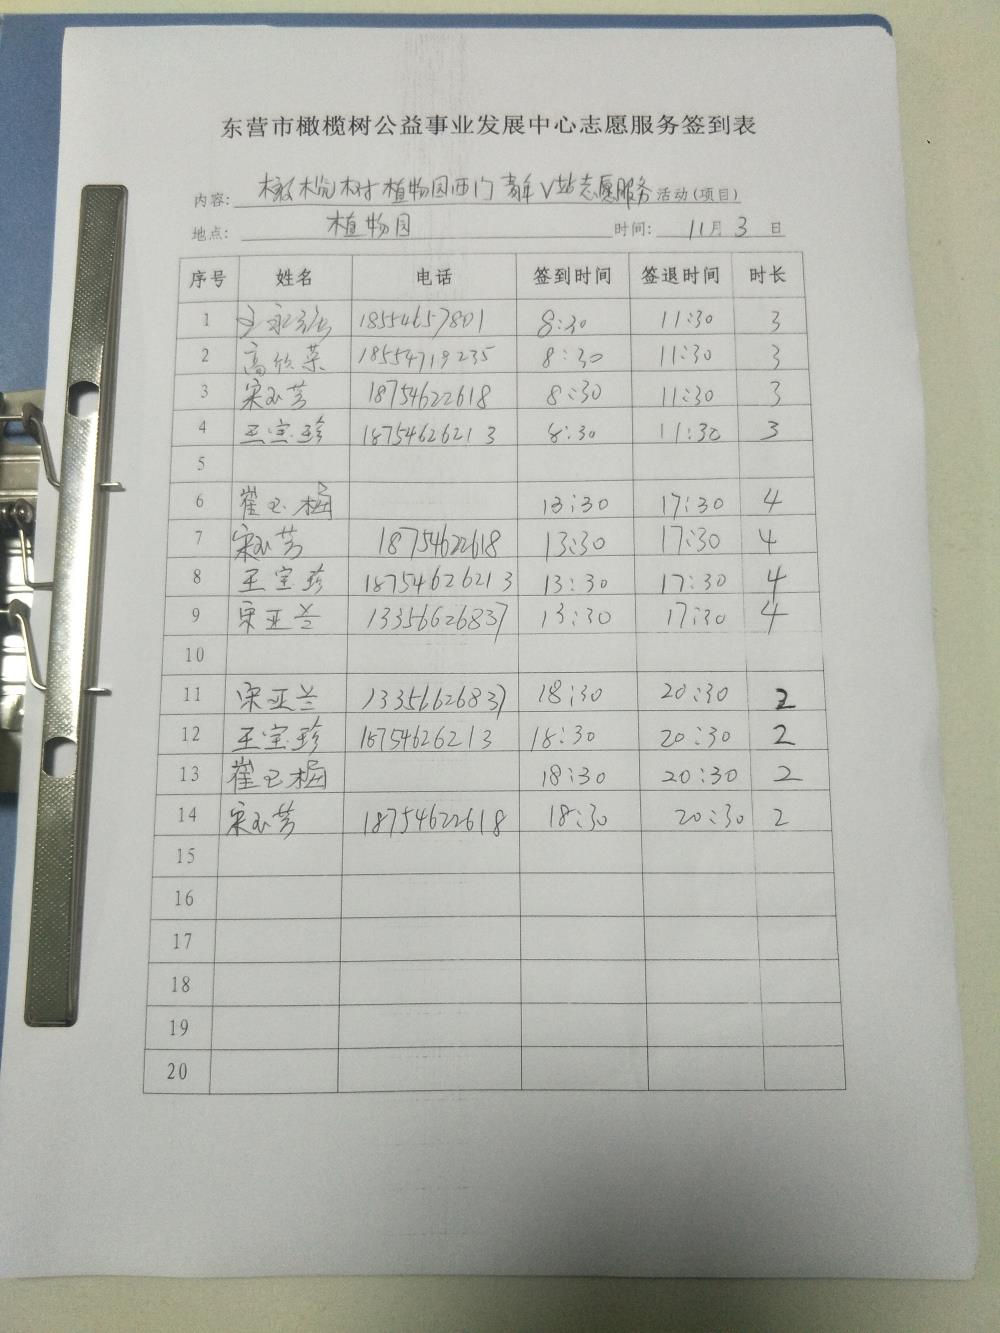 东营市橄榄树公益事业发展中心志愿服务签到表
内容: 橄榄树植物园西门青年V站志愿服务 活动(项目)
地点: 植物园 时间: 11月3日
序号 姓名 电话 签到时间 签退时间 时长
1 18554657801 8:30 11:30 3
2 高欣荣 18554719235 8:30 11:30 3
3 宋玉芳 18754622618 8:30 11:30 3
4 王宝珍 18754626213 8:30 11:30 3
5
6 崔玉梅 13:30 17:30 4
7 宋玉芳 18754622618 13:30 17:30 4
8 王宝珍 18754626213 13:30 17:30 4
9 宋亚兰 13356626837 13:30 17:30 4
10
11 宋亚兰 13356626837 18:30 20:30 2
12 王宝珍 18754626213 18:30 20:30 2
13 崔玉梅 18:30 20:30 2
14 宋玉芳 18754622618 18:30 20:30 2
15
16
17
18
19
20